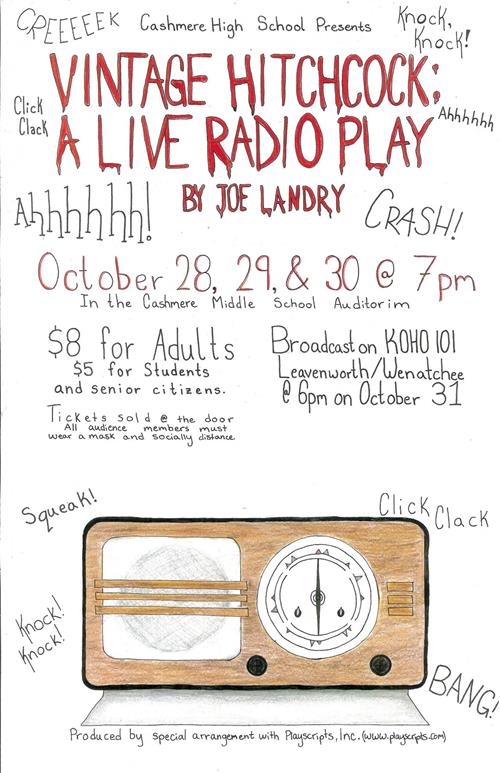 CREEEEEK
Cashmere High School Presents
Knock,
Knock!
VINTAGE HITCHCOCK:
Click
Clack
Ahhhhhh
A LIVE RADIO PLAY
BY JOE LANDRY
Ahhhhhh!
CRASH!
October 28, 29, & 30 @ 7pm
In the Cashmere Middle School Auditorim
$8 for Adults
$5 for Students
and senior citizens.
Broadcast on KOHO 101
Leavenworth/Wenatchee
@ 6pm on October 31
Tickets sold @ the door
All audience members must
wear a mask and socially distance
Squeak!
Click
Clack
Knock!
Knock!
BANG!
Produced by special arrangement with Playscripts, Inc. (www.playscripts.com)